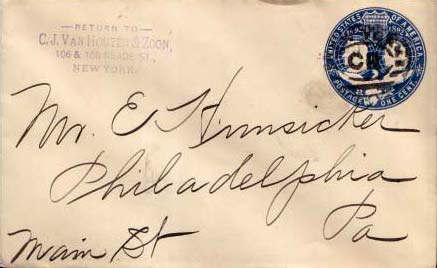 RETURN TO
C. J. VAN HOUTEN & ZOON,
106 & 108 READE ST.,
NEW YORK.
UNITED STATES OF AMERICA
POSTAGE ONE CENT
Mr. E Hunsicker
Philadelphia
Pa
Main St